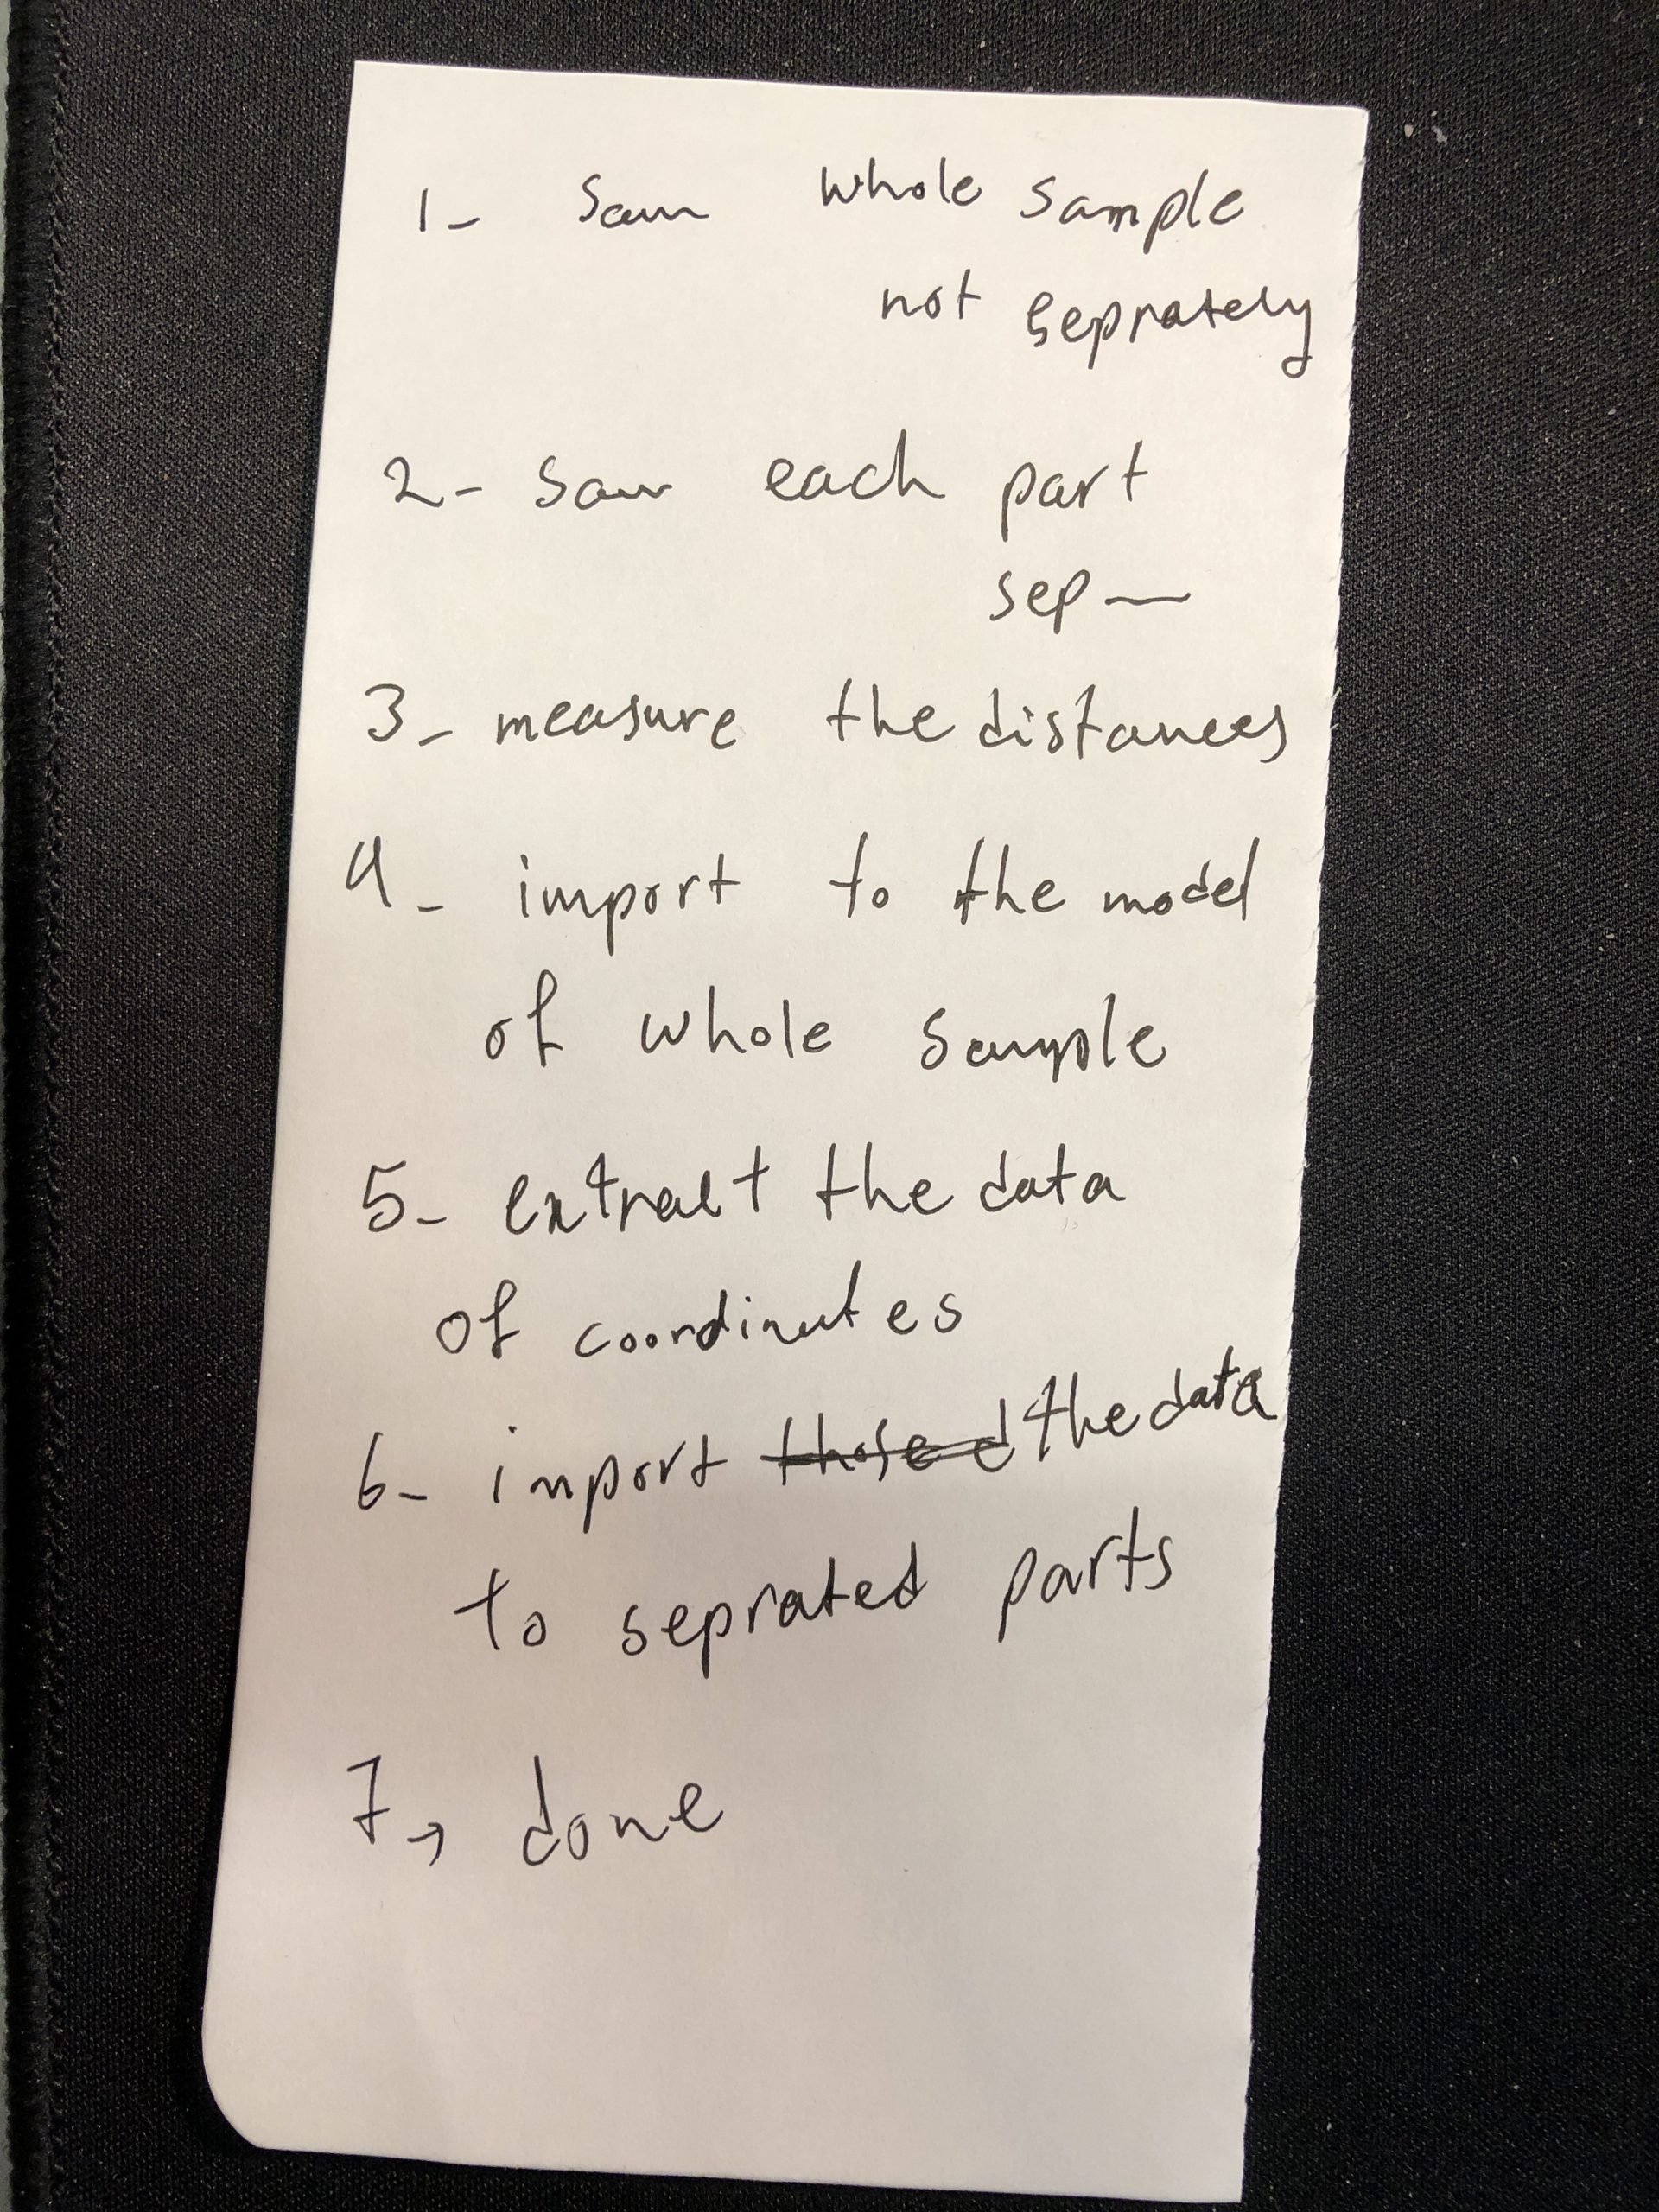 1- Scan whole sample
not seprately
2- Scan each part
sep—
3- measure the distances
4- import to the model
of whole sample
5- extract the data
of coordinates
6- import those d the data
to seprated parts
7→ done